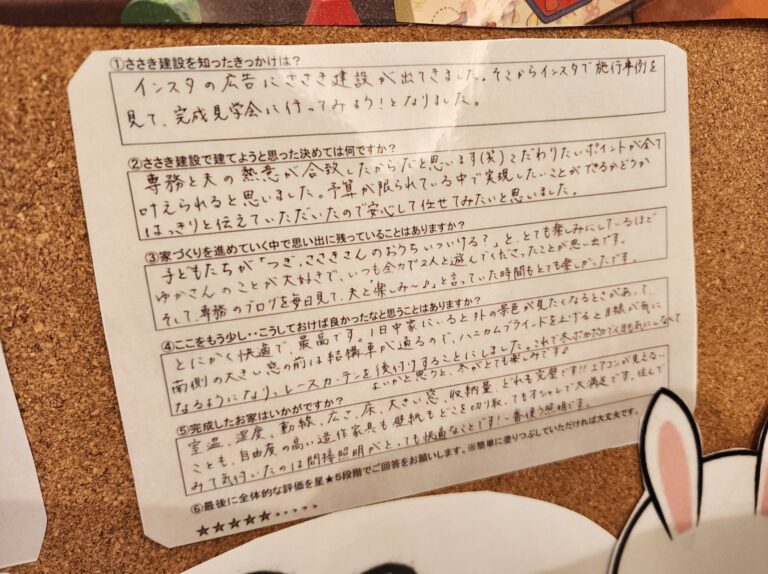 ①ささき建設を知ったきっかけは？
インスタの広告にささき建設が出てきました。そこからインスタで施行事例を
見て、完成見学会に行ってみよう！となりました。
②ささき建設で建てようと思った決めては何ですか？
専務と夫の熱意が合致したからだと思います(笑)こだわりたいポイントが全て
叶えられると思いました。予算が限られている中で実現したいことができるかどうか
はっきりと伝えていただいたので安心して任せてみたいと思いました。
③家づくりを進めていく中で思い出に残っていることはありますか？
子どもたちが「つぎ、ささきさんのおうちいついける？」と、とても楽しみにしているほど
ゆかさんのことが大好きで、いつも全力で2人と遊んでくださったことが思い出です。
そして、専務のブログを毎日見て、夫と楽しみ〜♪と言っていた時間もとても楽しかったです。
④ここをもう少し‥こうしておけば良かったなと思うことはありますか？
とにかく快適で、最高です。1日中家にいると外の景色が見たくなるときがあって、
南側の大きい窓の前は結構車が通るので、ハニカムブラインドを上げると目線が気に
なるようになり、レースカーテンを後付けすることにしました。これで冬ポカポカで人目も気にしなくて
よいかと思うと、冬がとても楽しみです♪
⑤完成したお家はいかがですか？
室温、湿度、動線、広さ、床、大きい窓、収納量、どれも完璧です!!エアコンが見えない
ことも、自由度の高い造作家具も壁紙もどこを切り取ってもオシャレで大満足です。住んで
みて気付いたのは間接照明がとっても快適なことです！一番使う照明です。
⑥最後に全体的な評価を星★5段階でご回答をお願いします。※簡単に塗りつぶしていただければ大丈夫です。
★★★★★